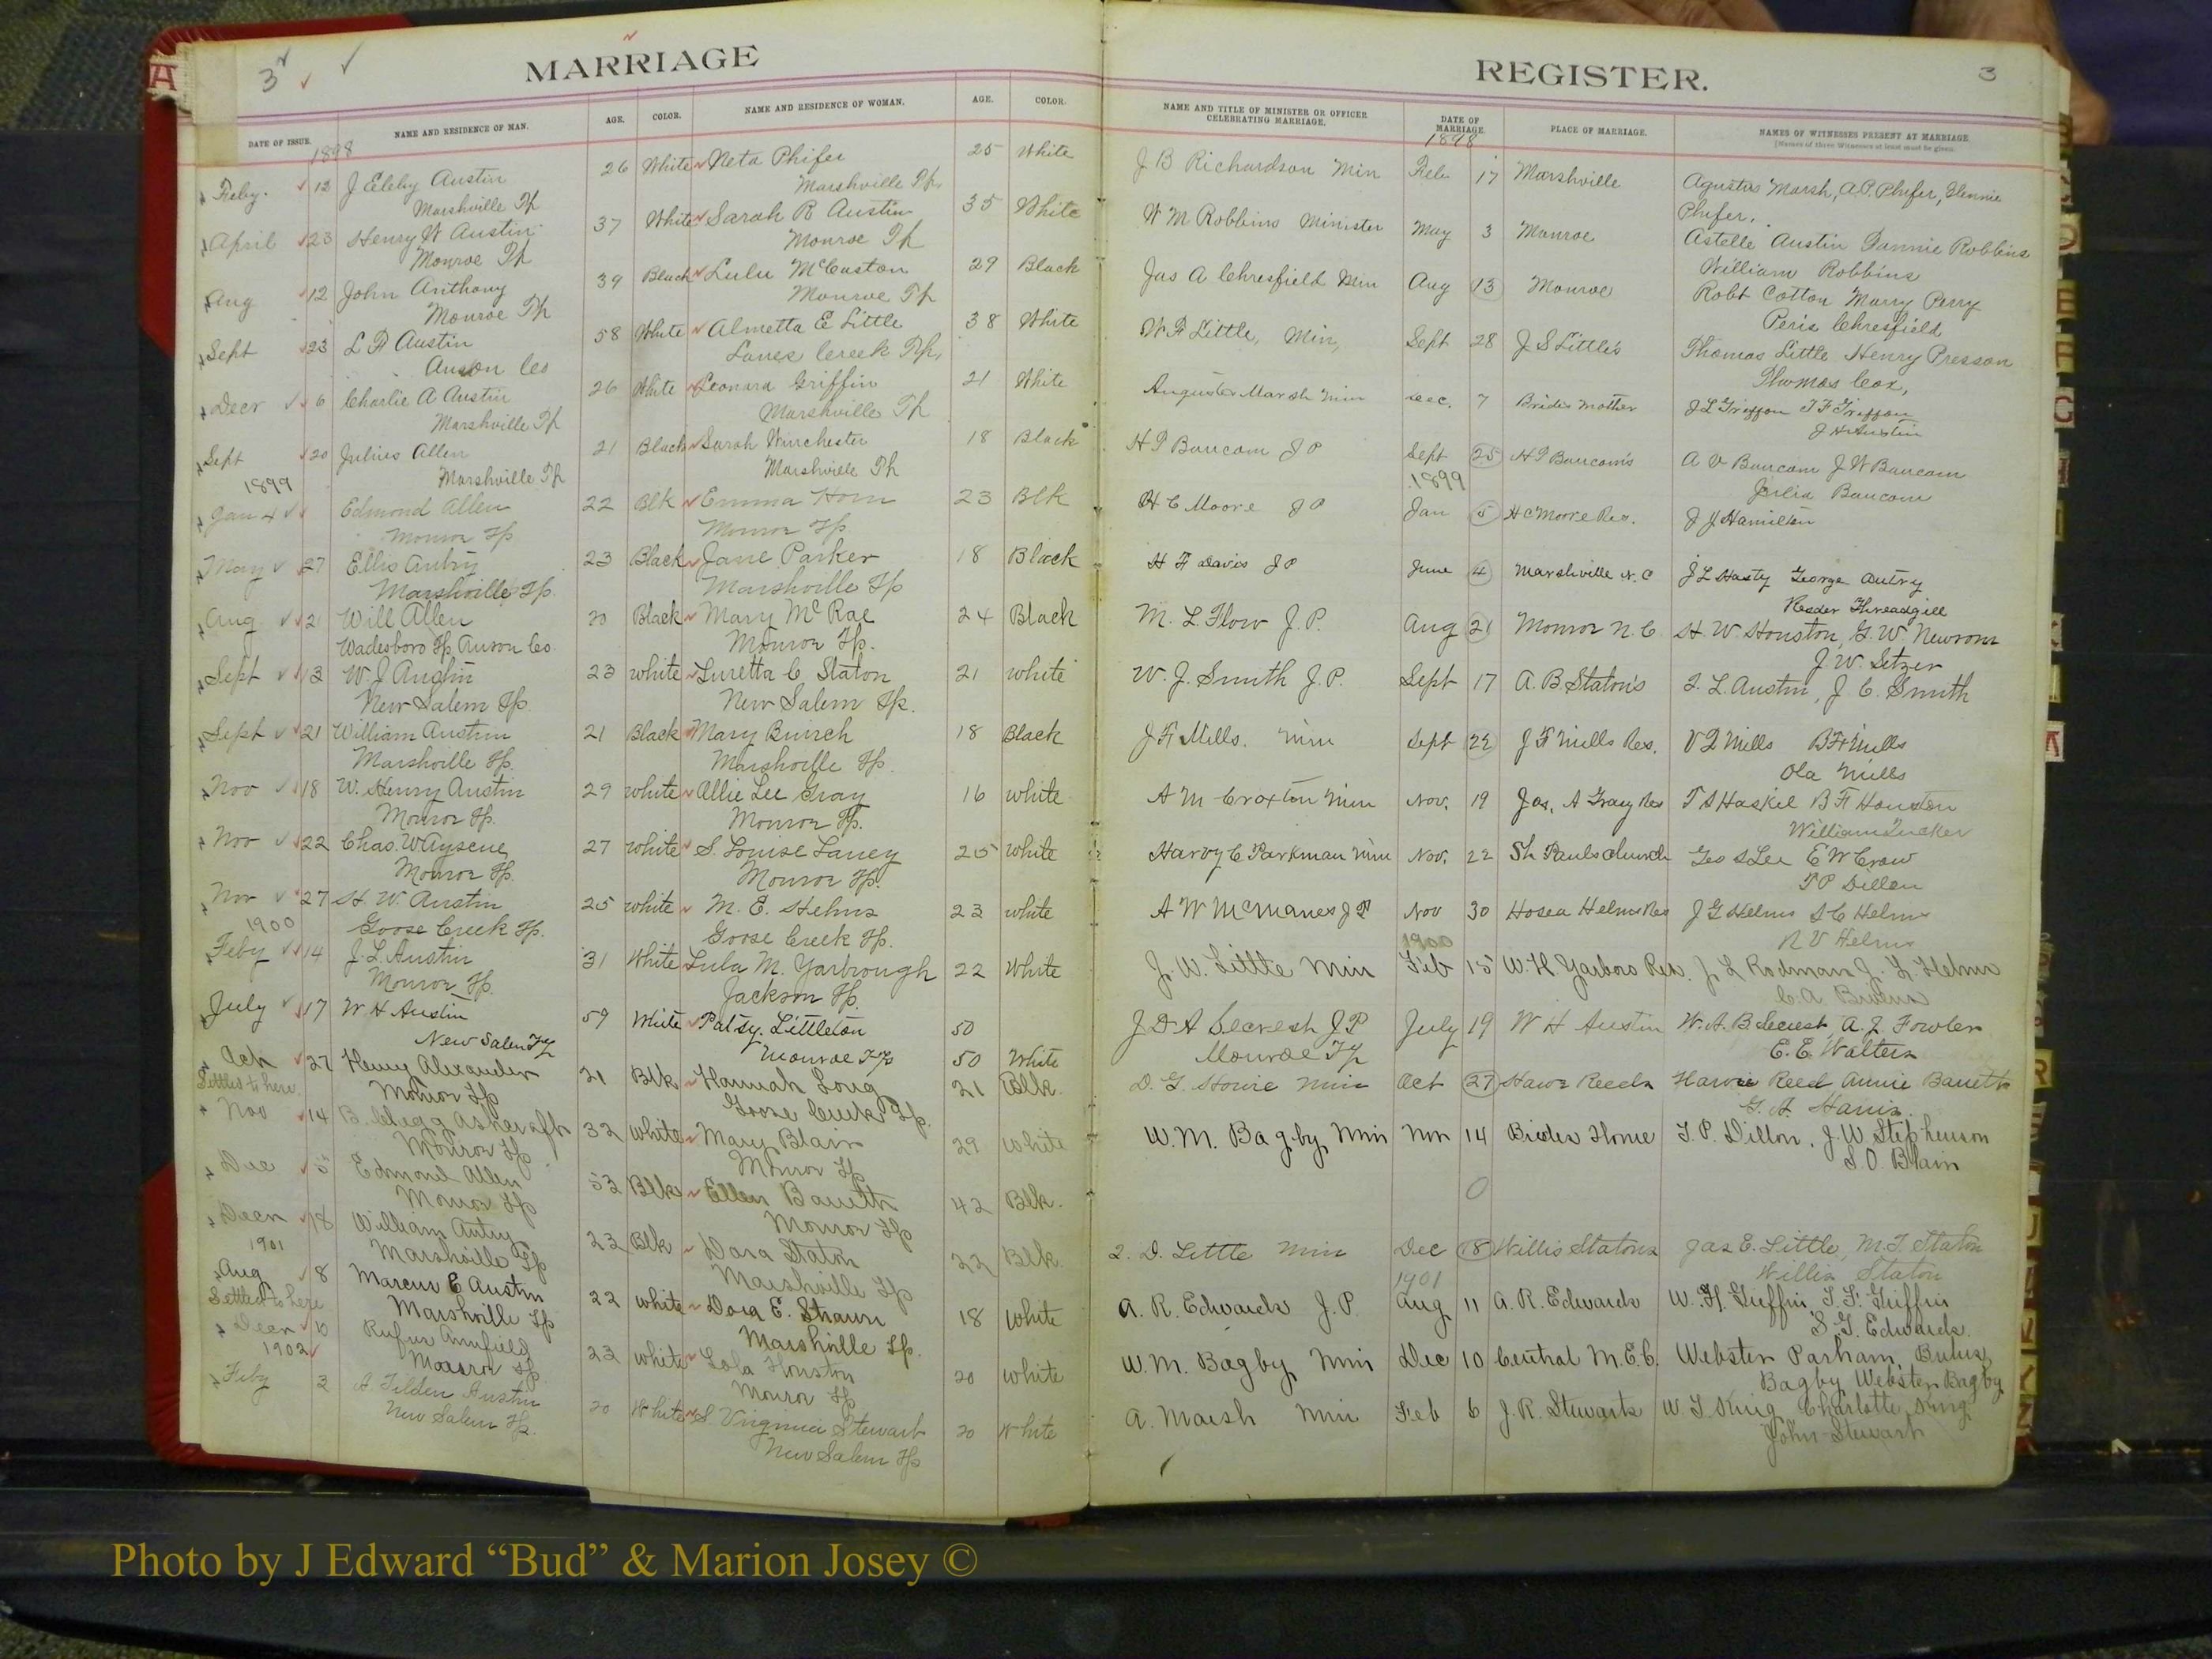 3
MARRIAGE
DATE OF ISSUE. NAME AND RESIDENCE OF MAN. AGE. COLOR. NAME AND RESIDENCE OF WOMAN. AGE. COLOR.
1898
Feby. 12 J Austin 26 White Neta Phifer 25 White
Marshville Tp Marshville Tp,
April 23 Henry W Austin 37 White Sarah R Austin 35 White
Monroe Tp Monroe Tp
Aug 12 John Anthony 39 Black Lulu McCaston 29 Black
Monroe Tp Monroe Tp
Sept 23 L P Austin 58 White Almetta E Little 38 White
Anson Co Lanes Creek Tp,
Decr 6 Charlie A Austin 26 White Leonara Griffin 21 White
Marshville Tp Marshville Tp
Sept 20 Julius Allen 21 Black Sarah Winchester 18 Black
Marshville Tp Marshville Tp
1899
Jan 4 Edmond Allen 22 Blk Emma Horn 23 Blk
Monroe Tp Monroe Tp
May 27 Ellis Autry 23 Black Jane Parker 18 Black
Marshville Tp. Marshville Tp
Aug 21 Will Allen 20 Black Mary McRae 24 Black
Wadesboro Tp Anson Co. Monroe Tp.
Sept 13 W. J. Austin 23 white Luretta C Staton 21 white
New Salem Tp. New Salem Tp.
Sept 21 William Austin 21 Black Mary Bunch 18 Black
Marshville Tp. Marshville Tp.
Nov 18 W. Henry Austin 29 white Allie Lee Gray 16 white
Monroe Tp. Monroe Tp.
Nov 22 Chas. W 27 white S. Louise Laney 25 white
Monroe Tp. Monroe Tp.
Nov 27 H. W. Austin 25 white M. E. Helms 23 white
1900 Goose Creek Tp. Goose Creek Tp.
Feby 14 J. L. Austin 31 White Lula M. Yarbrough 22 White
Monroe Tp. Jackson Tp.
July 17 W H Austin 59 White Patsy Littleton 50
New Salem Tp Monroe Tp 50 White
Oct 27 Henry Alexander 21 Blk Hannah Long 21 Blk.
Settled to here. Monroe Tp Goose Creek Tp.
Nov 14 B. Clegg Ashcraft 32 white Mary Blair 29 white
Monroe Tp. Monroe Tp
Dec 5 Edmond Allen 53 Blk Ellen Barrett 42 Blk.
Monroe Tp Monroe Tp
Decr 18 William Autry 23 Blk Dora Staton 22 Blk.
1901 Marshville Tp Marshville Tp
Aug 8 Marcus E Austin 22 white Dora E. Strawn 18 white
Settled to here Marshville Tp Marshville Tp.
Decr 10 Rufus Armfield 23 white Lola Houston 20 white
1902 Monroe Tp. Monroe Tp
Feby 3 A Tilden Austin 20 White S Virginia Stewart 20 White
New Salem Tp. New Salem Tp
REGISTER.
3
NAME AND TITLE OF MINISTER OR OFFICER CELEBRATING MARRIAGE. DATE OF MARRIAGE. PLACE OF MARRIAGE. NAMES OF WITNESSES PRESENT AT MARRIAGE
[Names of three Witnesses at least must be given.
1898
J B Richardson Min Feb 17 Marshville Agustus Marsh, A.P. Phifer,
Phifer.
W M Robbins Minister May 3 Monroe Astelle Austin Fannie Robbins
William Robbins
Jas A Chresfield Min Aug 13 Monroe Robt Cotton Mary Perry
Chresfield
W F Little, Min, Sept 28 J S Little's Thomas Little Henry Presson
Thomas Cox,
Augustus Marsh Min Dec. 7 Brides Mother J L Griffin T F Griffin
J H Austin
H T Baucom J P Sept 25 H T Baucom's A V Baucom J W Baucom
Julia Baucom
1899
H C Moore J P Jan 5 H C Moore Res. J Y Hamilton
H F Davis J P June 4 Marshville N. C J L Hasty George Autry
Reader Threadgill
M. L. Flow J. P. Aug 21 Monroe N. C. H. W. Houston, G. W. Newsom
J. W. Setzer
W. J. Smith J. P. Sept 17 A. B. Staton's T. L. Austin, J. C. Smith
J F Mills. Min Sept 22 J F Mills Res. V T Mills B F Mills
Ola Mills
A M Croxton Min Nov. 19 Jas. A Gray Res T S Haskel B F Houston
William Tucker
Harvy C Parkman Min Nov. 22 St Pauls church Geo S Lee E W Crow
T P Dillon
A W McManes J P Nov 30 Hosea Helms Res J G Helms S C Helms
R V Helms
1900
J. W. Little Min Feb 15 W. H Yarboro Res. J. L Rodman J. L. Helms
C. A. Bivens
J D A Secrest J P July 19 W H Austin W. A. B Secrest A. L. Fowler
Monroe Tp E. E. Walters
D. G. Howie Min Oct 27 Hawe Reeds Hawe Reed Annie Barrett
G. A. Harris.
W. M. Bagby Min Nov 14 Brides Home T. P. Dillon, J. W. Stephenson
S. O. Blair
0
D. Little Min Dec 18 Willis Statons Jas E. Little, M. T. Staton
Willis Staton
1901
A. R. Edwards J. P. Aug 11 A. R. Edwards W. H. Griffin, T. F. Griffin
S. G. Edwards.
W. M. Bagby Min Dec 10 Central M. E. C. Webster Parham,
Bagby Webster Bagby
A. Marsh Min Feb 6 J. R. Stewarts W. T. King Charlotte King
John Stewart
Photo by J Edward “Bud” & Marion Josey ©